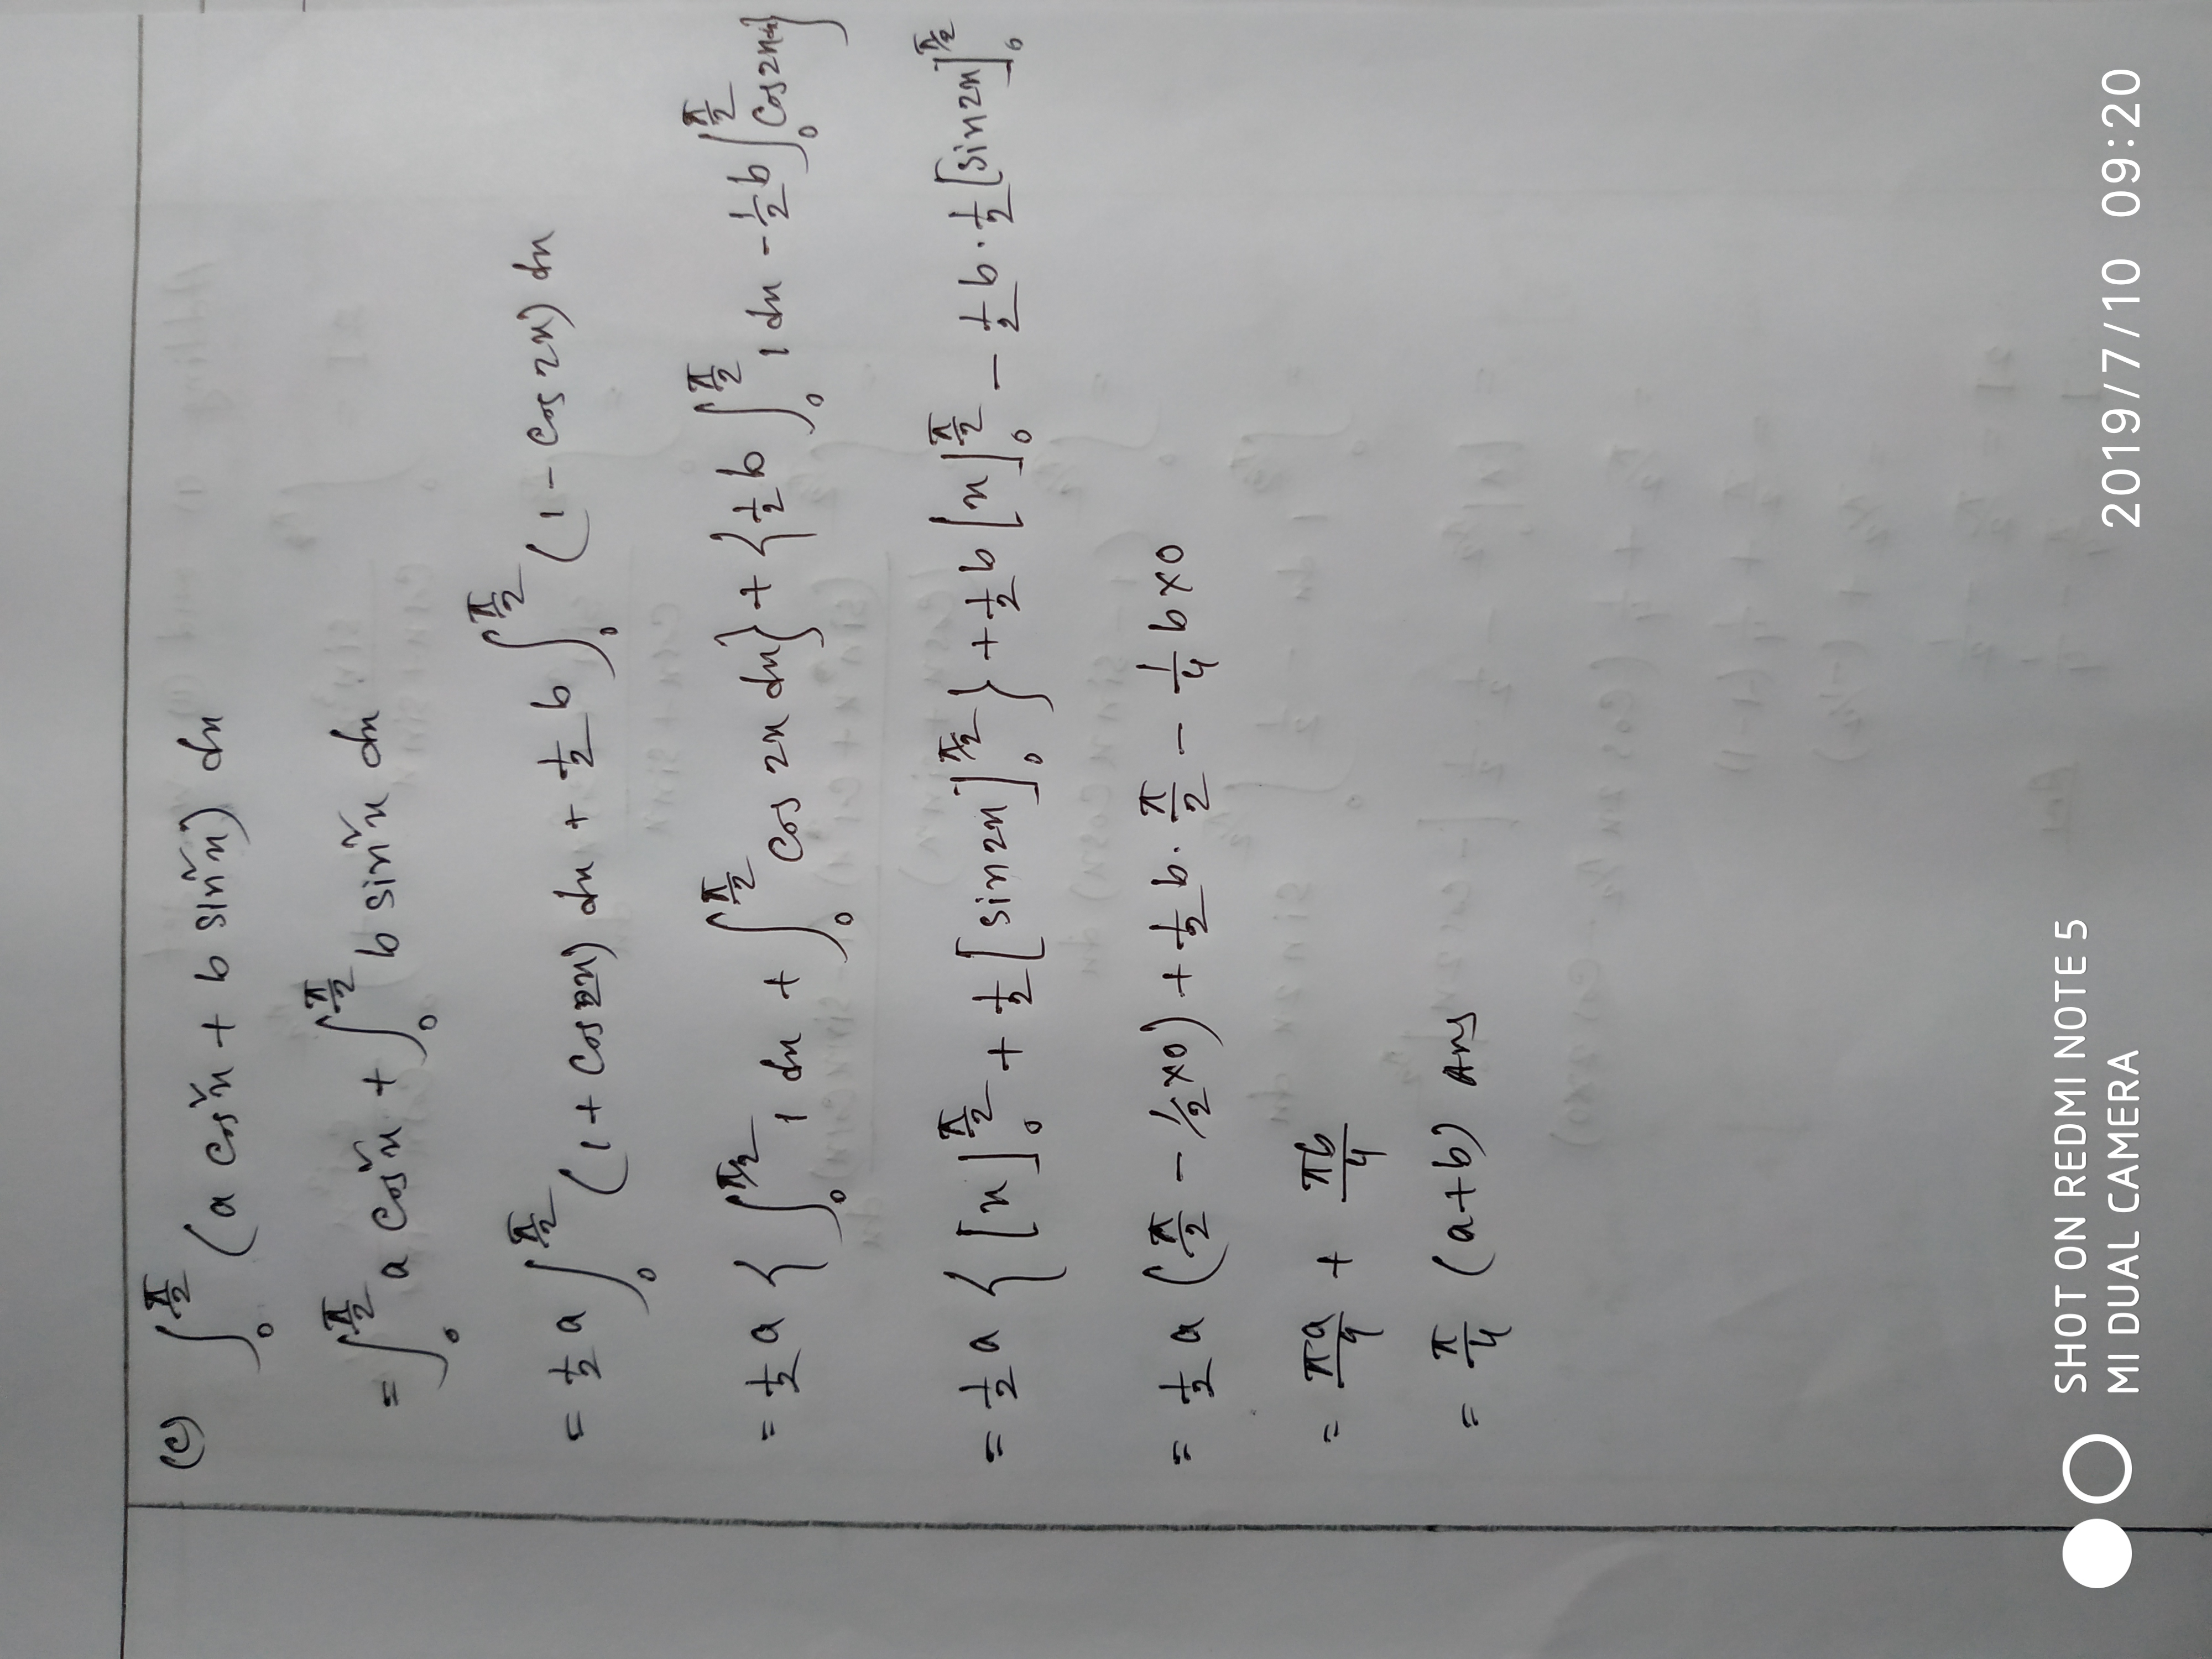 (c) ∫₀^{π/2} (a cos²x + b sin²x) dx
= ∫₀^{π/2} a cos²x + ∫₀^{π/2} b sin²x dx
= ½ a ∫₀^{π/2} (1 + cos2x) dx + ½ b ∫₀^{π/2} (1 - cos 2x) dx
= ½ a { ∫₀^{π/2} 1 dx + ∫₀^{π/2} cos 2x dx} + {½ b ∫₀^{π/2} 1 dx - ½ b ∫₀^{π/2} cos 2x dx}
= ½ a { [x]₀^{π/2} + ½ [sin 2x]₀^{π/2} } + ½ b [x]₀^{π/2} - ½ b · ½ [sin 2x]₀^{π/2}
= ½ a (π/2 - ½ × 0) + ½ b · π/2 - ¼ b × 0
= πa/4 + πb/4
= π/4 (a+b) Ans
SHOT ON REDMI NOTE 5
MI DUAL CAMERA
2019/7/10 09:20